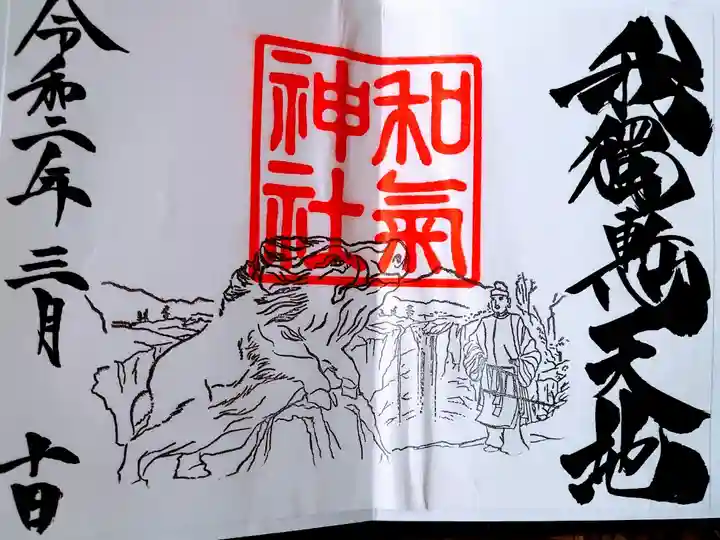 我獨慙天地
和氣
神社
令和二年 三月 十日